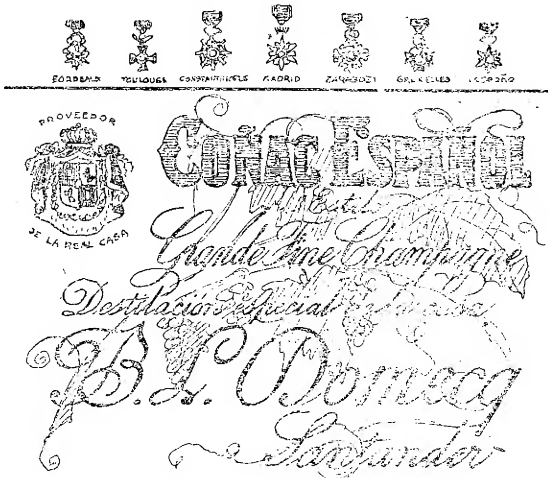 BORDEAUX TOULOUSE CONSTANTINOPLE MADRID ZARAGOZA BRUXELLES LOGROÑO
PROVEEDOR
DE LA REAL CASA
COÑAC ESPAÑOL
Estilo
Grande Fine Champagne
Destilación especial
B. L. Domecq
Santander